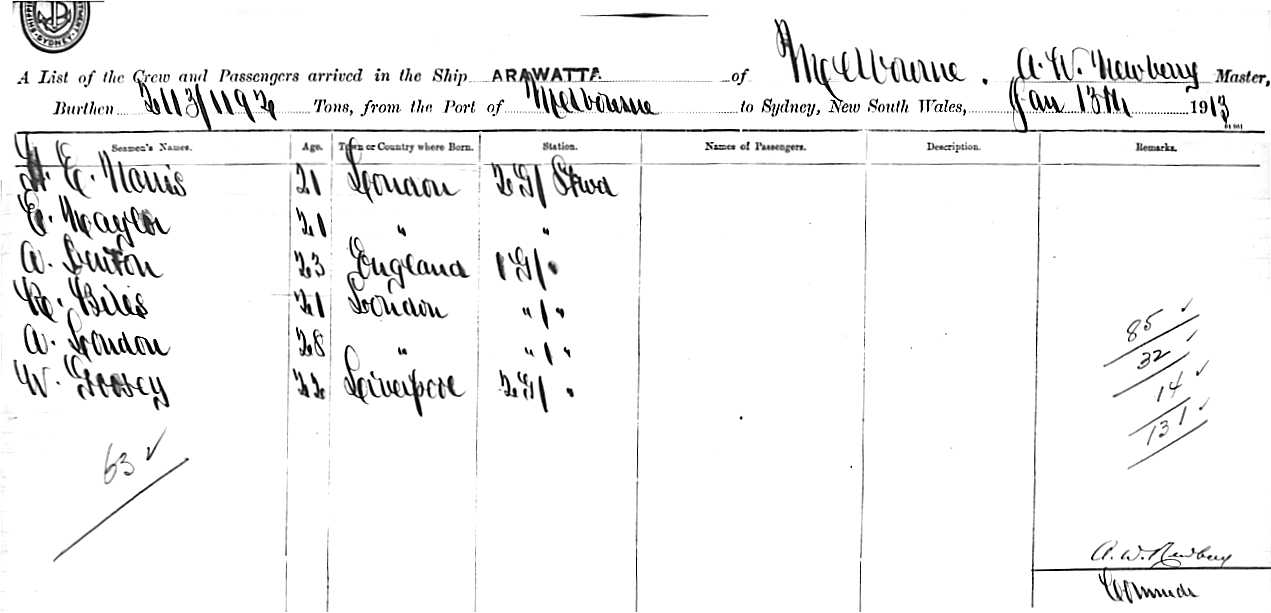 SHIPPING SYDNEY
A List of the Crew and Passengers arrived in the Ship ARAWATTA of Melbourne. A. W. Newberry Master,
Burthen 2113/1192 Tons, from the Port of Melbourne to Sydney, New South Wales, Jan 13th 1913
Seamen's Names. Age. Town or Country where Born. Station. Names of Passengers. Description. Remarks.
H. E. Norris 21 London 2G/ Stwd
E. Naylor 21 " "
A. Denton 23 England 1G/ "
R. 21 London " / "
A. London 28 " " / "
W. 22 Liverpool 2G/ "
85
32
14
131
63
A. W. Newberry